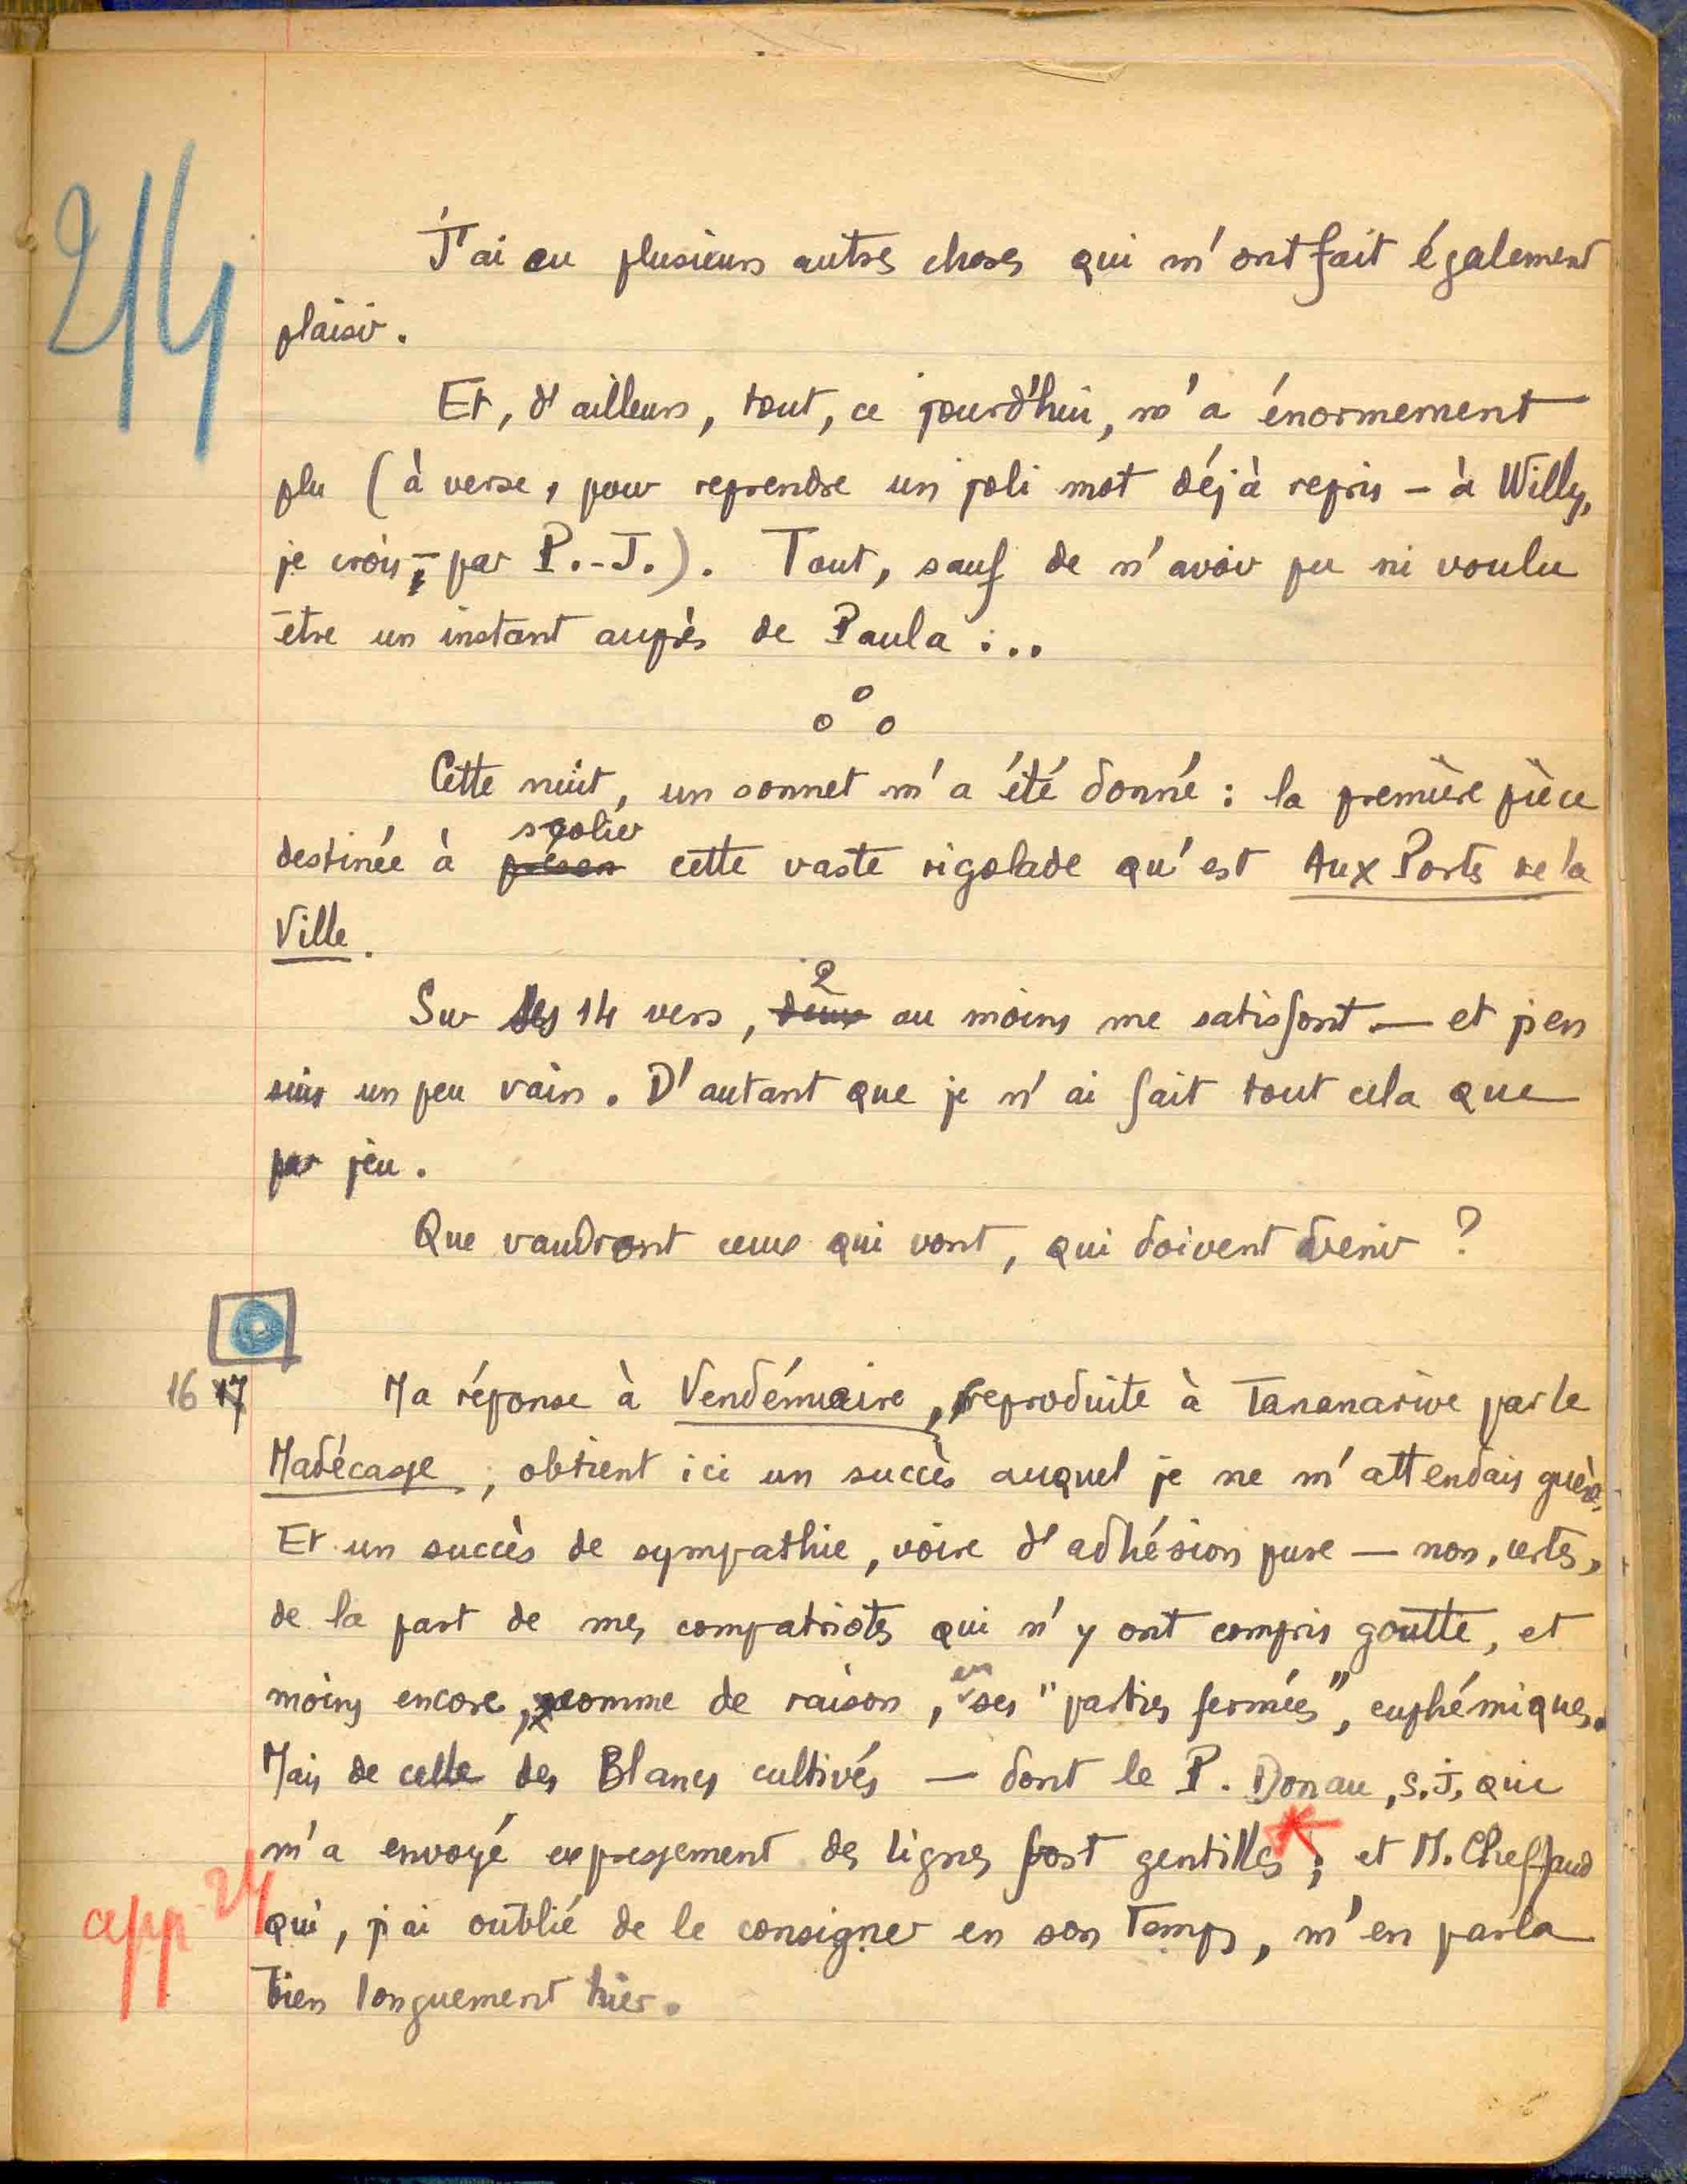 214
J'ai eu plusieurs autres choses qui m'ont fait également
plaisir.
Et, d'ailleurs, tout, ce jourd'hui, m'a énormement
plu (à verse, pour reprendre un joli mot déjà repris – à Willy,
je crois, – par P.-J.). Tout, sauf de n'avoir pu ni voulu
être un instant auprès de Paula :..
o o o
Cette nuit, un sonnet m'a été donné : la première pièce
scolier
destinée à cette vaste rigolade qu'est Aux Portes de la
Ville.
2
Sur les 14 vers, deux au moins me satisfont — et j'en
suis un peu vain. D'autant que je n'ai fait tout cela que
par jeu.
Que vaudront ceux qui vont, qui doivent venir ?
16 17 Ma réponse à Vendémiaire, reproduite à Tananarive par le
Madécasse, obtient ici un succès auquel je ne m'attendais guère.
Et un succès de sympathie, voire d'adhésion pure — non, certes,
de la part de mes compatriotes qui n'y ont compris goutte, et
en
moins encore, comme de raison, ses "parties fermées", euphémiques.
Mais de celle des Blancs cultivés — dont le P. Donau, S.J. qui
m'a envoyé expressement des lignes fort gentilles ; et M. Cheffaud
app 24 qui, j'ai oublié de le consigner en son temps, m'en parla
bien longuement hier.